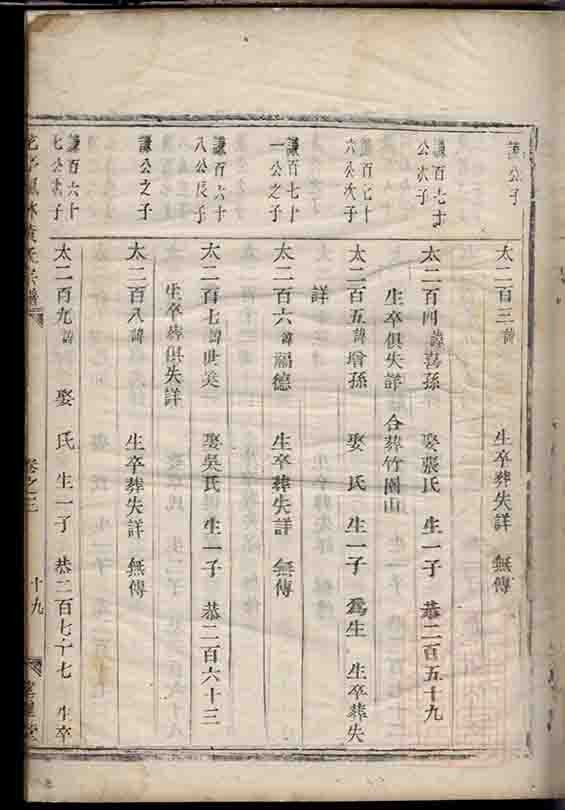 謙公子
太二百三諱 生卒葬失詳 無傳
謙百七十
公次子
太二百四諱喜孫 娶張氏 生一子 恭二百五十九
生卒俱失詳 合葬竹園山
謙百七十
六公次子
太二百五諱增孫 娶 氏 生一子 爲生 生卒葬失
詳
謙百七十
一公之子
太二百六諱福德 生卒葬失詳 無傳
謙百六十
八公長子
太二百七諱世美 娶吳氏 生一子 恭二百六十三
生卒葬俱失詳
謙公之子
太二百八諱 生卒葬失詳 無傳
謙百六十
七公次子
太二百九諱 娶 氏 生一子 恭二百七十七 生卒
黃氏宗譜 卷之三 十九 堂